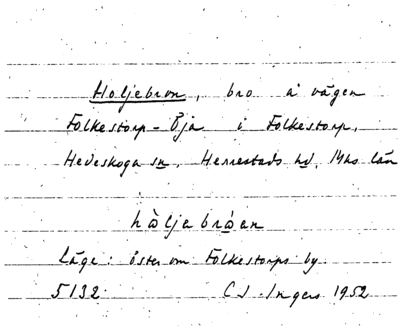 Holjebron, bro å vägen
Folkestorp-Öja i Folkestorp,
Hedeskoga sn. Herrestads hd. Mhs län
hòljabråen
Läge: öster om Folkestorps by.
5132 C J. Ingers 1952